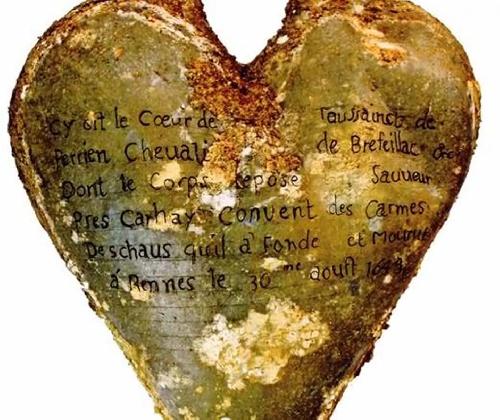 cy git le Coeur de Taussainct de
Perrien Chevali de Brefeillac
Dont le Corps Repose Sauveur
Pres Carhay Convent des Carmes
Deschaus quil a Fonde et Mourut
á Rennes le 30 me aoust